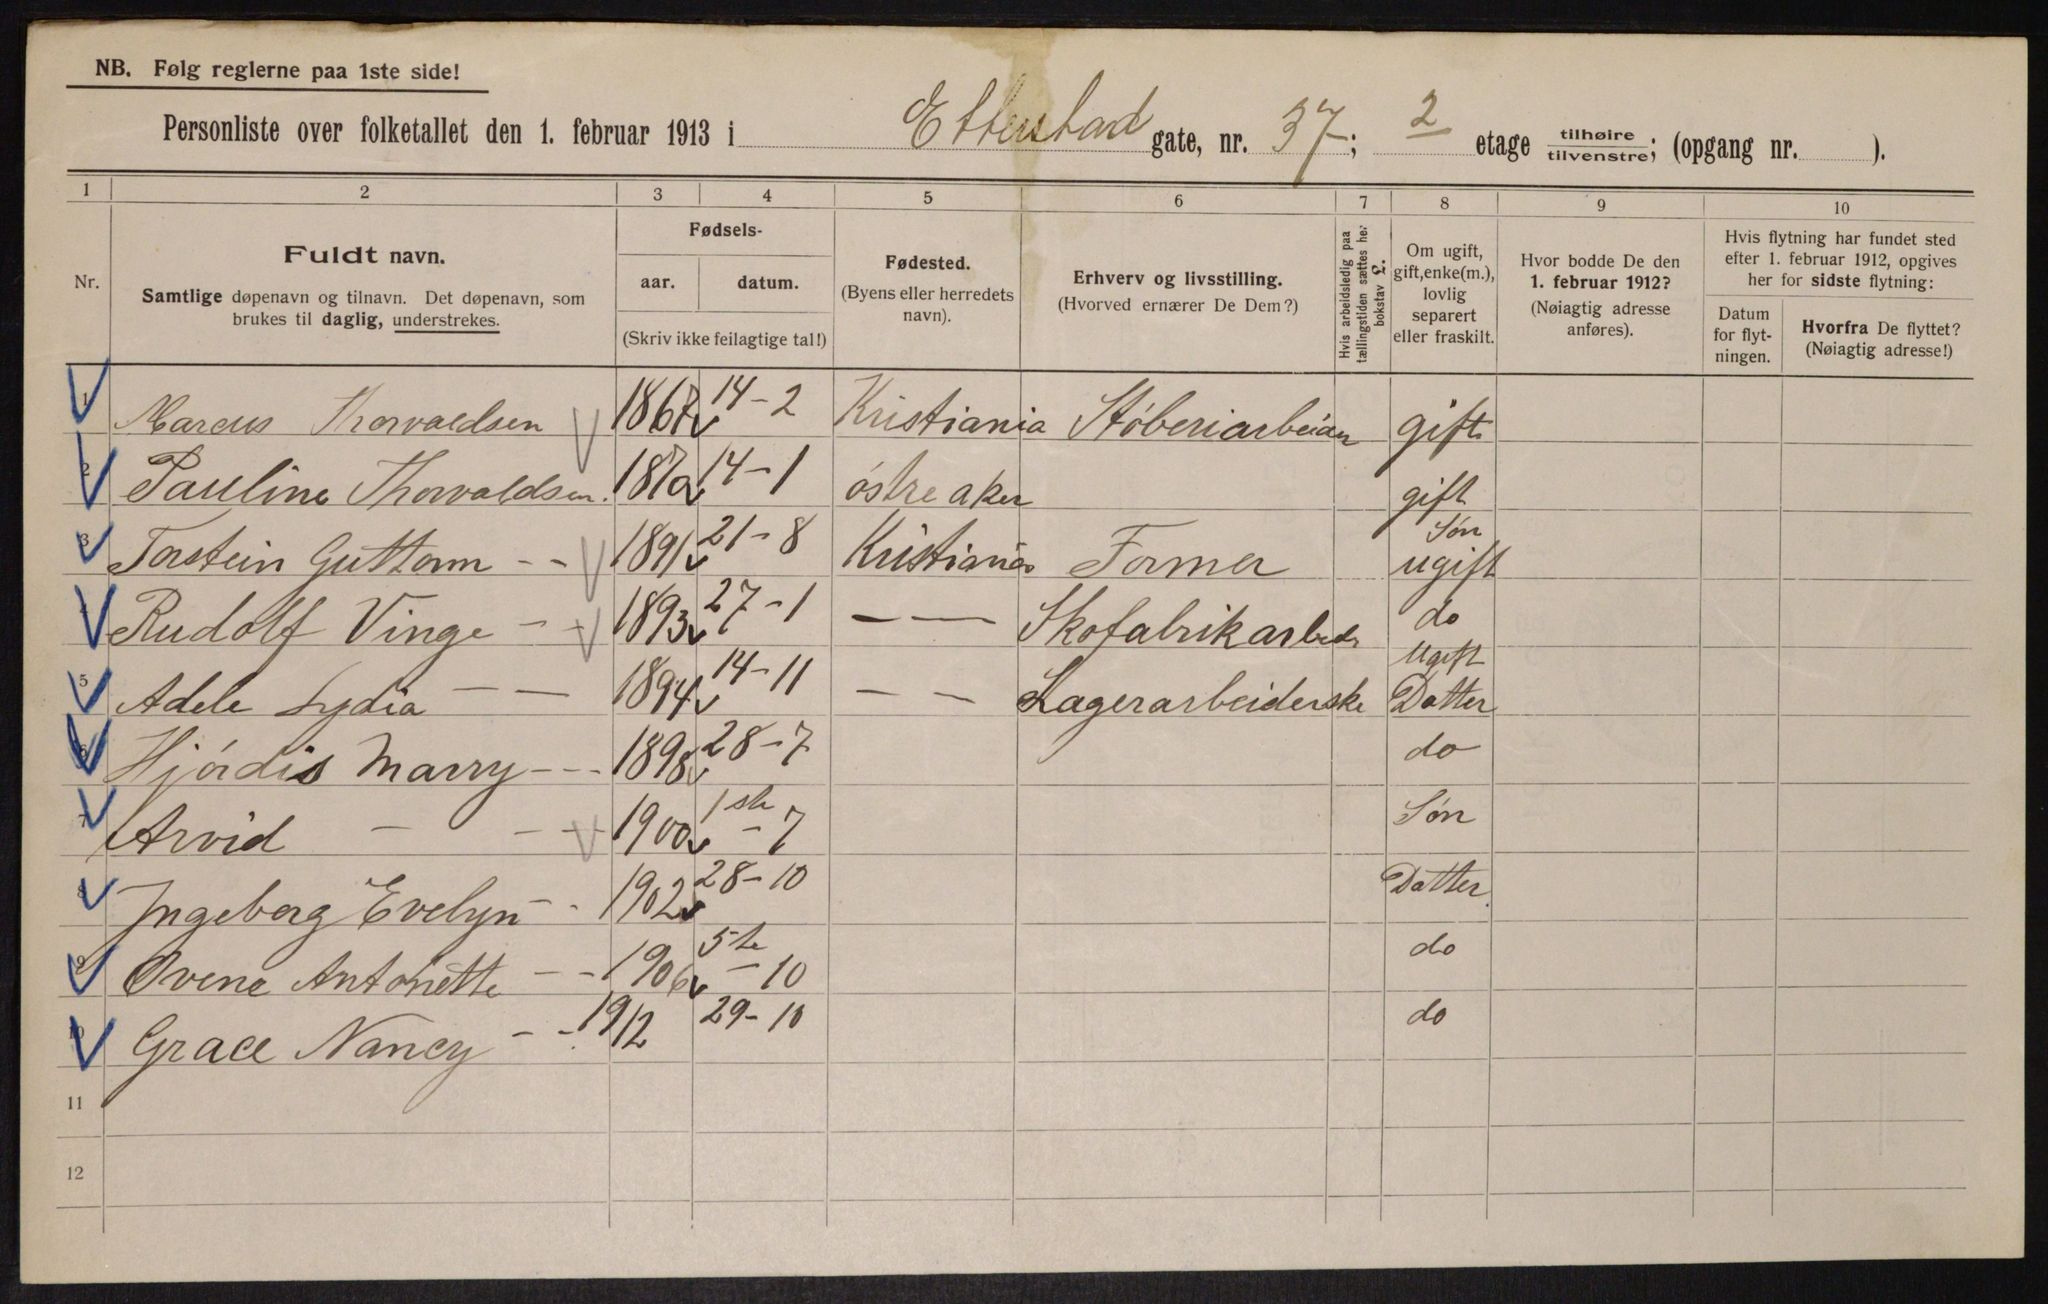 NB. Følg reglerne paa 1ste side!
Personliste over folketallet den 1. februar 1913 i Etterstad gate, nr. 37; 2 etage tilhøire tilvenstre; (opgang nr. ).
1 2 3 4 5 6 7 8 9 10
Nr.
Fuldt navn.
Samtlige døpenavn og tilnavn. Det døpenavn, som
brukes til daglig, understrekes.
Fødsels-
aar. datum.
(Skriv ikke feilagtige tal!)
Fødested.
(Byens eller herredets
navn).
Erhverv og livsstilling.
(Hvorved ernærer De Dem?)
Hvis arbeidsledig paa
tællingstiden sættes her
bokstav L.
Om ugift,
gift, enke(m.),
lovlig
separert
eller fraskilt.
Hvor bodde De den
1. februar 1912?
(Nøiagtig adresse
anføres).
Hvis flytning har fundet sted
efter 1. februar 1912, opgives
her for sidste flytning:
Datum
for flyt-
ningen.
Hvorfra De flyttet?
(Nøiagtig adresse!)
1 Marcus Thorvaldsen 1867 14-2 Kristiania Støberiarbeider gift
2 Pauline Thorvaldsen. 1870 14-1 østre aker gift
3 Torstein Guttorm - - 1891 21-8 Kristiania Former Søn ugift
4 Rudolf Vinge - - 1893 27-1 — — Skofabrikarbeidr do ugift
5 Adele Lydia — — 1894 14-11 — — Lagerarbeiderske Datter
6 Hjørdis Marry - - - 1898 28-7 do
7 Arvid - - - 1900 1ste - 7 Søn
8 Ingeborg Evelyn - - 1902 28-10 Datter
9 Ovene Antonette - - 1906 5te - 10 do
10 Grace Nancy - - 1912 29-10 do
11
12